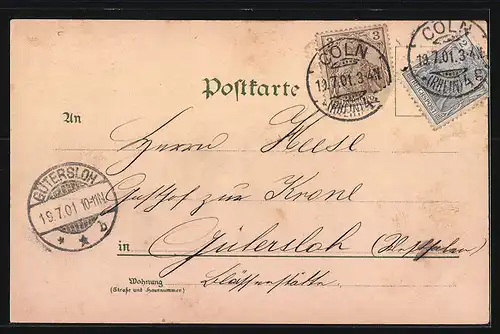 CÖLN
19.7.01.3-4N
* (RHEIN) 4
3
CÖLN
19.7.01.3-4N
* (RHEIN) 4
2
Postkarte
An
Herrn Heese
Gasthof zur Krone
in Gütersloh (Westfalen)
GÜTERSLOH
19.7.01 10-11N
* * b
Wohnung
(Straße und Hausnummer)